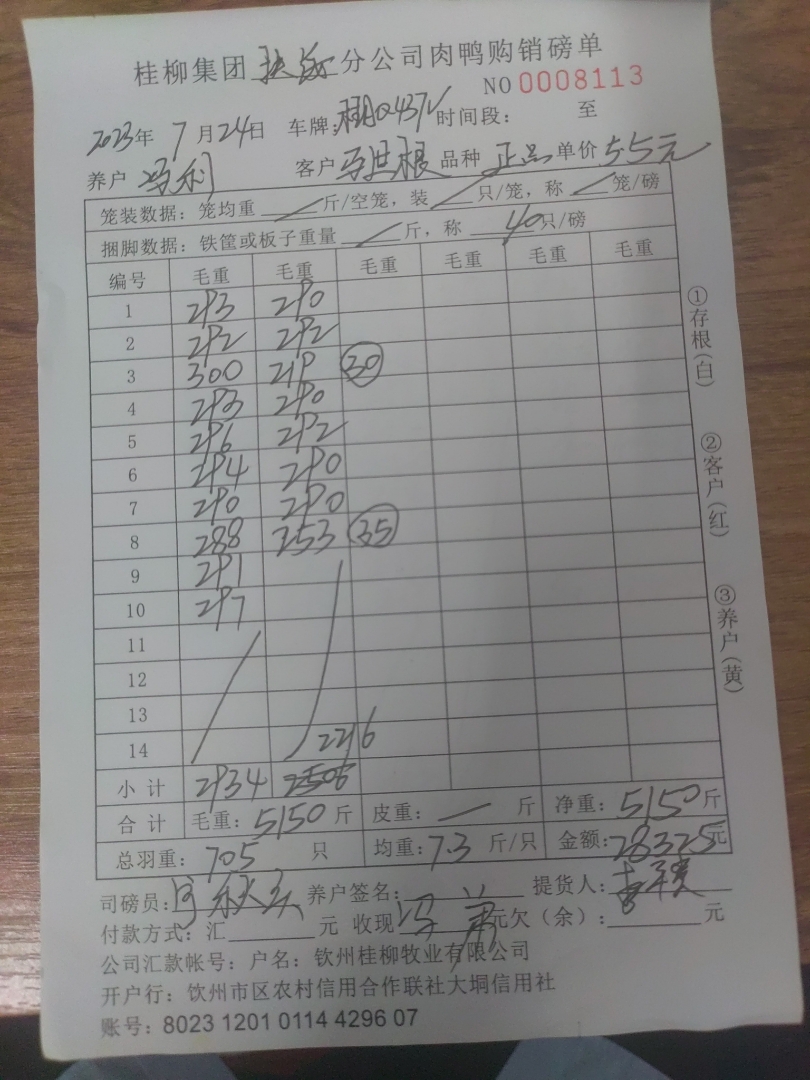 桂柳集团 分公司肉鸭购销磅单
NO 0008113
2023年 7月24日 车牌: 437 时间段: 至
养户 冯利 客户 马世根 品种 正品 单价 5.5元
笼装数据: 笼均重 / 斤/空笼, 装 / 只/笼, 称 / 笼/磅
捆脚数据: 铁筐或板子重量 / 斤, 称 40 只/磅
编号 毛重 毛重 毛重 毛重 毛重 毛重
1 293 290
2 292 292
3 300 219 30
4 293 290
5 296 292
6 294 290
7 290 290
8 288 253 35
9 291
10 297
11
12
13
14 2216
小计 2934
合计 毛重: 5150 斤 皮重: — 斤 净重: 5150 斤
总羽重: 705 只 均重: 7.3 斤/只 金额: 28325 元
司磅员: 养户签名: 提货人:
付款方式: 汇 元 收现 元欠(余): 元
公司汇款帐号: 户名: 钦州桂柳牧业有限公司
开户行: 钦州市区农村信用合作联社大垌信用社
账号: 8023 1201 0114 4296 07
①存根(白)
②客户(红)
③养户(黄)